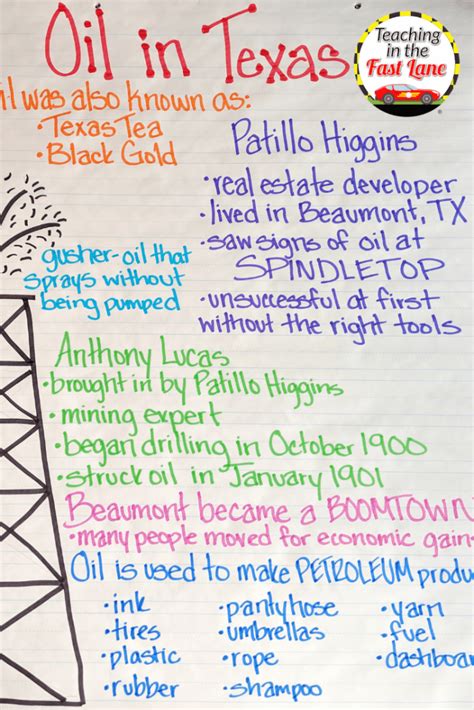 Teaching
in the
Fast Lane
Oil in Texas
il was also known as:
•Texas Tea
•Black Gold
Patillo Higgins
•real estate developer
•lived in Beaumont, TX
•saw signs of oil at
SPINDLETOP
•unsuccessful at first
without the right tools
gusher-oil that
sprays without
being pumped
Anthony Lucas
•brought in by Patillo Higgins
•mining expert
•began drilling in October 1900
•struck oil in January 1901
Beaumont became a BOOMTOWN
•many people moved for economic gain
Oil is used to make PETROLEUM produ
•ink
•tires
•plastic
•rubber
•pantyhose
•umbrellas
•rope
•shampoo
•yarn
•fuel
•dashboa